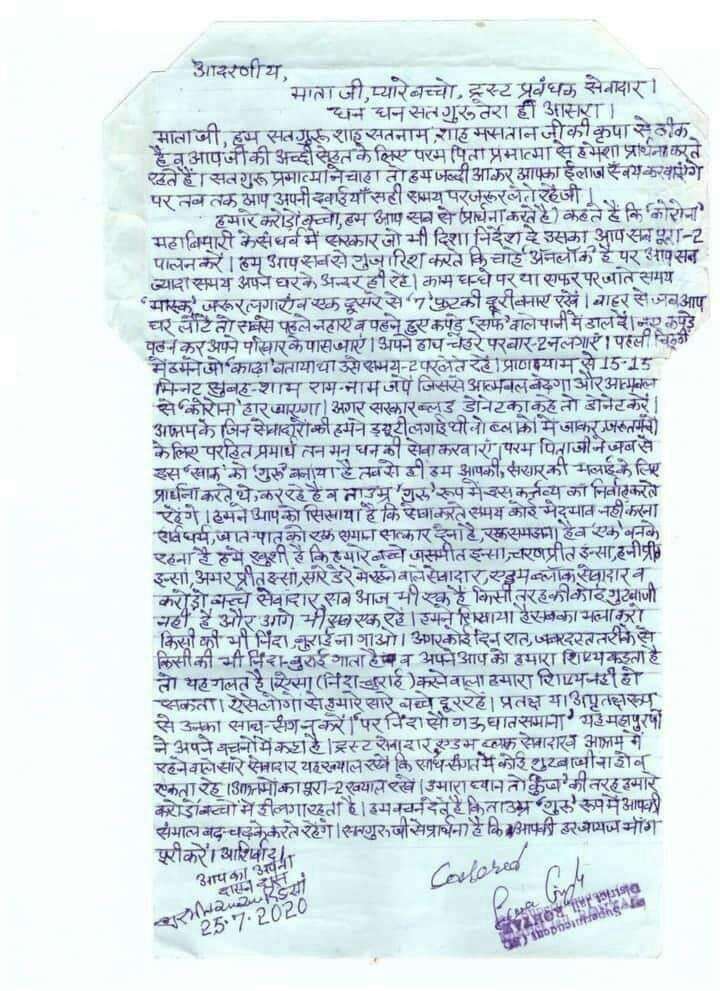 आदरणीय,
माता जी, प्यारे बच्चो, ट्रस्ट प्रबंधक सेवादार।
धन धन सतगुरु तेरा ही आसरा।
माताजी, हम सतगुरु शाह सतनाम, शाह मस्तान जी की कृपा से ठीक
है व आपजी की अच्छी सेहत के लिए परम पिता प्रमात्मा से हमेशा प्रार्थना करते
रहते हैं। सतगुरु प्रमात्मा ने चाहा तो हम जल्दी आकर आपका ईलाज स्वयं करवाएंगे
पर तब तक आप अपनी दवाईयाँ सही समय पर जरूर लेते रहें जी।
हमारे करोड़ों बच्चो, हम आप सब से (प्रार्थना करते है) कहते हैं कि 'कोरोना'
महाबिमारी के संदर्भ में सरकार जो भी दिशा निर्देश दे उसका आप सब पूरा-2
पालन करें। हम आप सबसे गुजारिश करते कि चाहे अनलॉक है पर आप सब
ज्यादा समय अपने घर के अन्दर ही रहें। काम धन्धे पर या सफर पर जाते समय
'मास्क' जरूर लगाएं व एक दूसरे से '7' फुट की दूरी बनाए रखें। बाहर से जब आप
घर लौटें तो सबसे पहले नहाएं व पहने हुए कपड़े 'सर्फ' वाले पानी में डाल दें। नए कपड़े
पहन कर अपने परिवार के पास जाएं। अपने हाथ चेहरे पर बार-2 न लगाएं। पहली चिट्ठी
में हमने जो 'काढ़ा' बताया था उसे समय-2 पर लेते रहें। प्राणायाम से 15-15
मिनट सुबह-शाम राम-नाम जपें जिससे आत्मबल बढ़ेगा और आत्मबल
से 'कोरोना' हार जाएगा। अगर सरकार ब्लड डोनेट का कहे तो डोनेट करें।
आश्रम के जिन सेवादारों की हमने ड्यूटी लगाई थी वो ब्लॉकों में जाकर जरूतमंदों
के लिए परहित प्रमार्थ तन मन धन की सेवा करवाएं। परम पिताजी ने जब से
इस 'खाक' को 'गुरु' बनाया है तब से ही हम आपकी, संसार की भलाई के लिए
प्रार्थना करते थे, कर रहे हैं व ताउम्र 'गुरु' रूप में इस कर्त्तव्य का निर्वाह करते
रहेंगे। हमने आपको सिखाया है कि सेवा करते समय कोई भेदभाव नहीं करना
सर्व धर्म, जात-पात को एक समान सत्कार देना है, एक समझना है व 'एक' बनके
रहना है हमें खुशी है कि हमारे बच्चे जसमीत इन्सां, चरणप्रीत इन्सां, हनीप्रीत
इन्सां, अमरप्रीत इन्सां, सारे डेरे में रहने वाले सेवादार, एडम ब्लॉक सेवादार व
करोड़ों बच्चे सेवादार सब आज भी एक है किसी तरह की कोई गुटबाजी
नहीं है और आगे भी सब एक रहें। हमने सिखाया है सबका भला करो
किसी की भी निंदा, बुराई ना गाओ। अगर कोई दिन रात, जबरदस्त तरीके से
किसी की भी निंदा-बुराई गाता है व अपने आप को हमारा शिष्य कहता है
तो यह गलत है। ऐसा (निंदा-बुराई) करने वाला हमारा शिष्य नहीं हो
सकता। ऐसे लोगों से हमारे सारे बच्चे दूर रहें। प्रतक्ष या अप्रतक्ष रूप
से उनका साथ-संग न करें। 'पर निंदा सौ गऊ घात समाना' यह महापुरुषों
ने अपने बचनों में कहा है। ट्रस्ट सेवादार, एडम ब्लाक सेवादार व आश्रम में
रहने वाले सारे सेवादार यह ख्याल रखें कि साध संगत में कोई गुटबाजी ना हो व
एकता रहे। आश्रमों का पूरा-2 ख्याल रखें। हमारा ध्यान तो 'कुंज' की तरह हमारे
करोड़ों बच्चों में ही लगा रहता है। हम वचन देते है कि ताउम्र 'गुरु' रूप में आपकी
संभाल बढ़-चढ़के करते रहेंगे। सतगुरु जी से प्रार्थना है कि आपकी हर जायज माँग
पूरी करें। आशिर्वाद।
आप का अपना
दासन दास
25.7.2020
Censored
District Jail ROHTAK